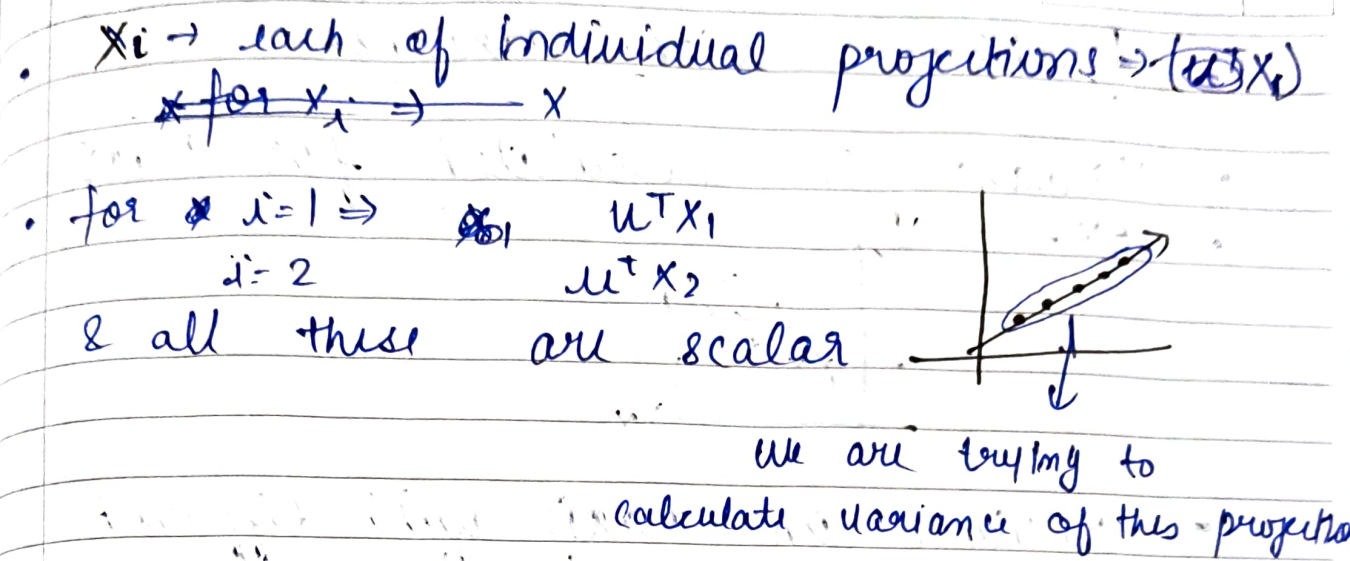 • Xi → each of individual projections ⇒ (uᵀXi)
for Xi ⇒ X
• for i=1 ⇒ uᵀX₁
i=2 uᵀX₂
& all these are scalar
we are trying to
calculate variance of this projectio